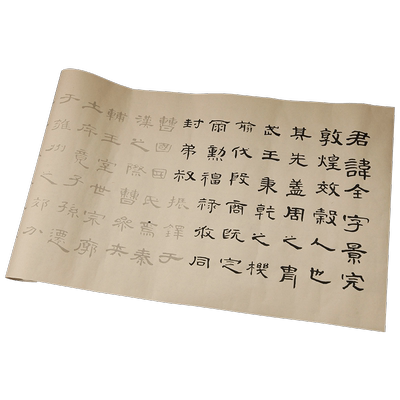 君諱全字景完
敦煌效穀人也
其先蓋周之胄
武王秉乾之機
翦伐殷商既定
爾勳福祿攸同
封弟叔振鐸于
曹國因氏焉秦
漢之際曹參夾
輔王室世宗廓
土斥竟子孫遷
于雍州之郊分